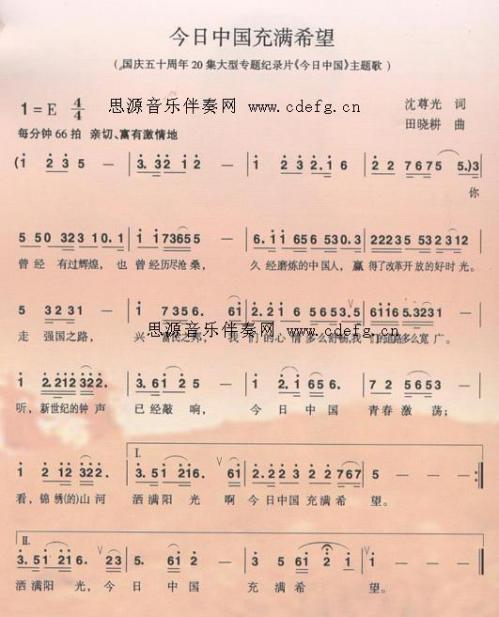 今日中国充满希望
(国庆五十周年20集大型专题纪录片《今日中国》主题歌)
1=E 4/4
思源音乐伴奏网 www.cdefg.cn
沈尊光 词
每分钟66拍 亲切、富有激情地
田晓耕 曲
(1 2 3 5 — 3. 3 2 1 2 — 1 2 3 2. 1 6 2 2 7 6 7 5 5.) 3
你
5 5 0 3 2 3 1 0. 1 1 1 7 3 6 5 5 — 6. 1 1 6 5 6 5 3 0. 3 2 2 2 3 5 2 3 2 1 2
曾经 有过辉煌,也 曾经历尽沧桑, 久经磨炼的中国人,赢 得了改革开放的好时光。
5 3 2 3 1 —
走 强国之路, 兴
思源音乐伴奏网 www.cdefg.cn
1 2. 2 1 2 3 2 2 2. 3. 6 1 2 5 — 1 2. 1 6 5 6. 7 2 5 6 5 3
听,新世纪的钟声 已经敲 响, 今日中国 青春激荡;
I.
1 2 1 2 3 2 2 2. 3. 5 1 2 1 6. 6 1 2. 2 2 3 2 2 7 6 7 5 — — —
看,锦绣(的)山河 洒满阳光 啊 今日中国充满希 望。
II.
3. 5 1 2 1 6. 2 3 5. 6 1 2 — 2. 3 5 6 1 2 1 — — —
洒满阳光,今 日 中国 充满希 望。